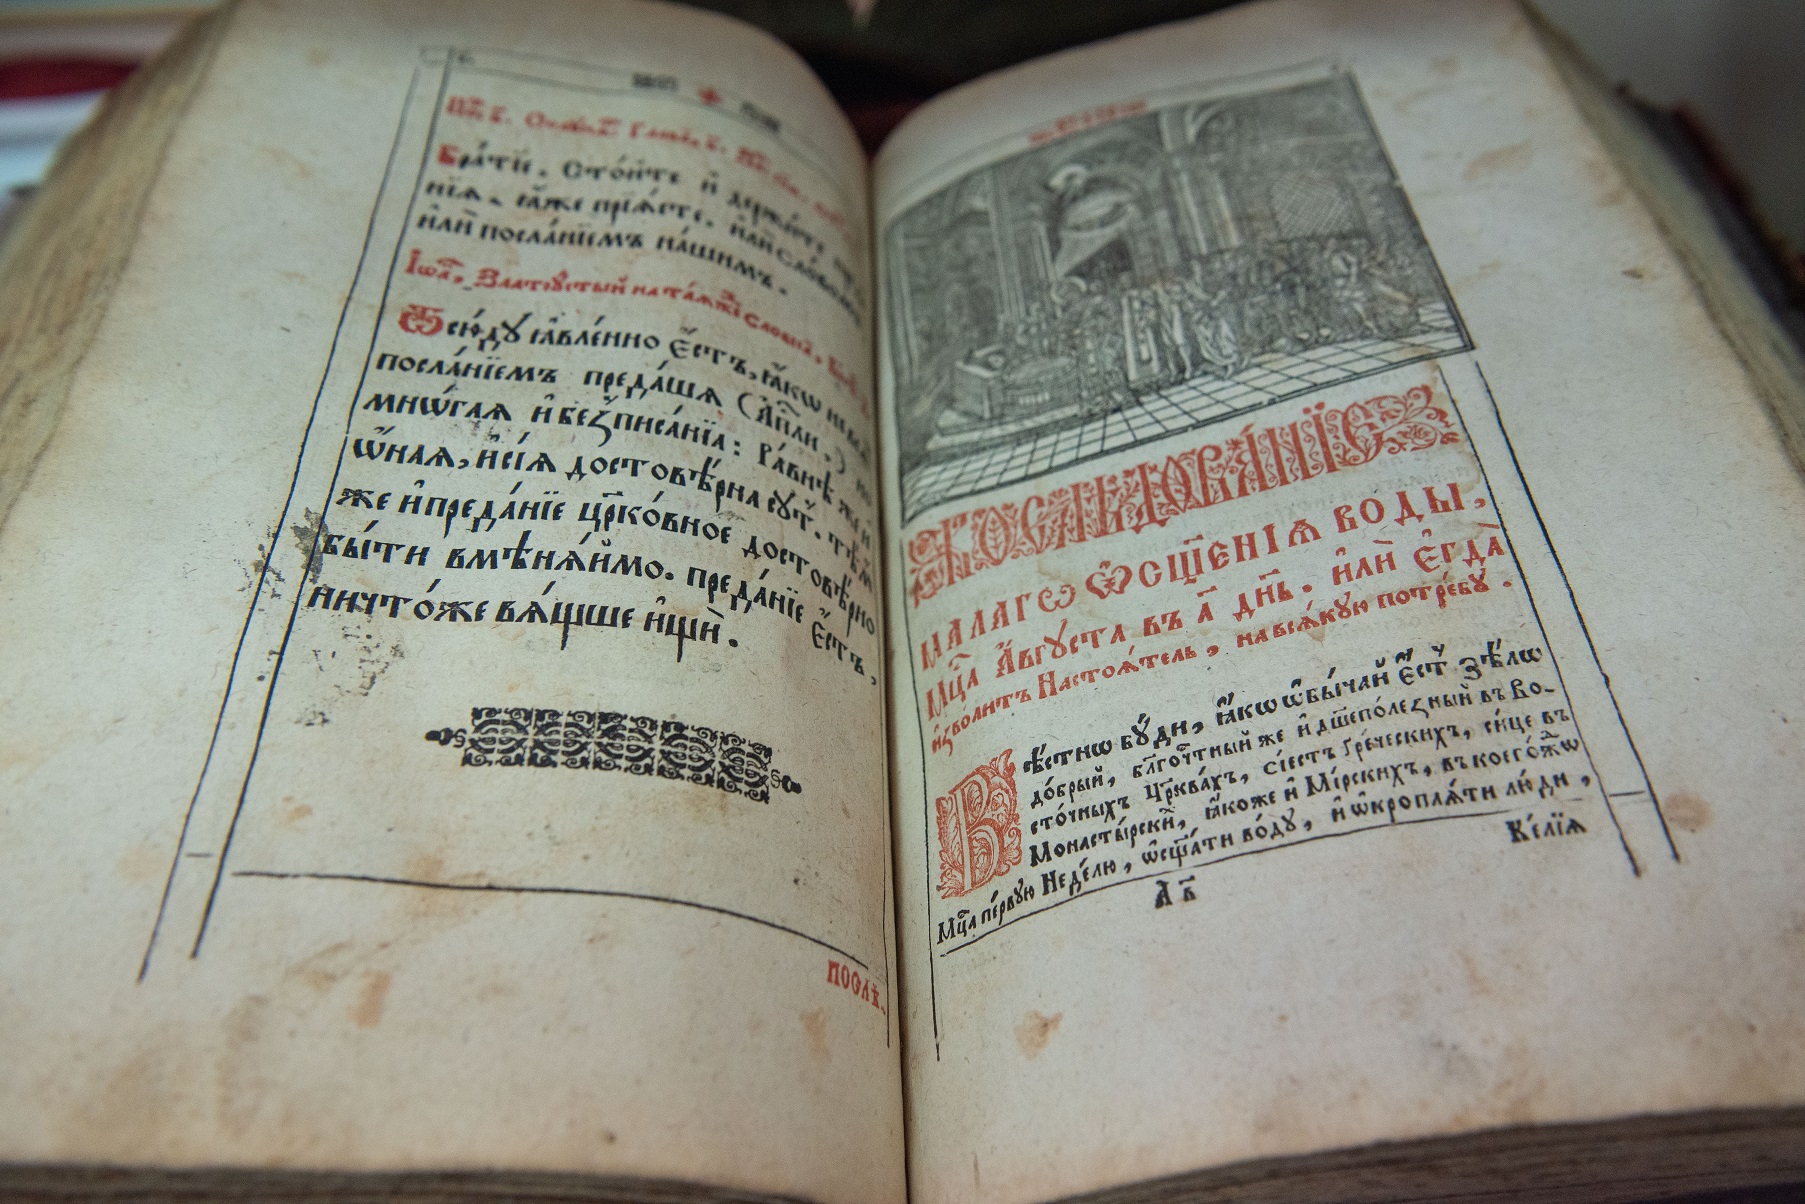 Бра́тїе. Сто́йте и҆ держи́те
нїѧ. ꙗ҆́же прїѧ́сте. и҆лѝ сло́вомъ
и҆лѝ посла́нїемъ на́шимъ.
Златоꙋ́стый на
Ѿсю́дꙋ ꙗ҆вле́нно є҆́стъ, ꙗ҆́кѡ не всѧ̀
посла́нїемъ преда́шѧ (А҆п҃ли,) но
мнѡ́гаѧ и҆ без̾писа́нїа: Ра́внѣ же и҆
ѡ҆́наѧ, и҆ сїѧ̀ достовѣ́рна сꙋ́т̾. тѣ́м̾
же и҆ преда́нїе цр҃ко́вное достовѣ́рно
бы́ти вмѣнѧ́ймо. преда́нїе є҆́стъ,
ничто́же вѧ́щше и҆щѝ.
послѣ.
ПОСЛѢДОВА́НЇЕ
МАЛАГѠ Ѡ҆СЩ҃Е́НІѦ ВО́ДЫ,
Мц҃а А҆́ѵгꙋста въ а҃ дн҃ь. и҆лѝ є҆гда̀
и҆зво́литъ Настоѧ́тель, на всѧ́кꙋю потре́бꙋ.
Вѣ́стно бꙋ́ди, ꙗ҆́кѡ ѡ҆бы́чай є҆́ст̾ ѕѣ́лѡ
до́брый, бл҃гоч҇тный же и҆ дш҃еполе́зный въ Во-
сто́чныхъ Цр҃ква́хъ, сїе́стъ Гре́ческихъ, си́це въ
Монасты́рскихъ, ꙗ҆́коже и҆ Мїрски́хъ, въ коего́жⷣѡ
Мц҃а пе́рвꙋю Недѣ́лю, ѡ҆сщ҃а́ти во́дꙋ, и҆ ѡ҆кроплѧ́ти лю́ди,
А҃в҃ Ке́лїѧ